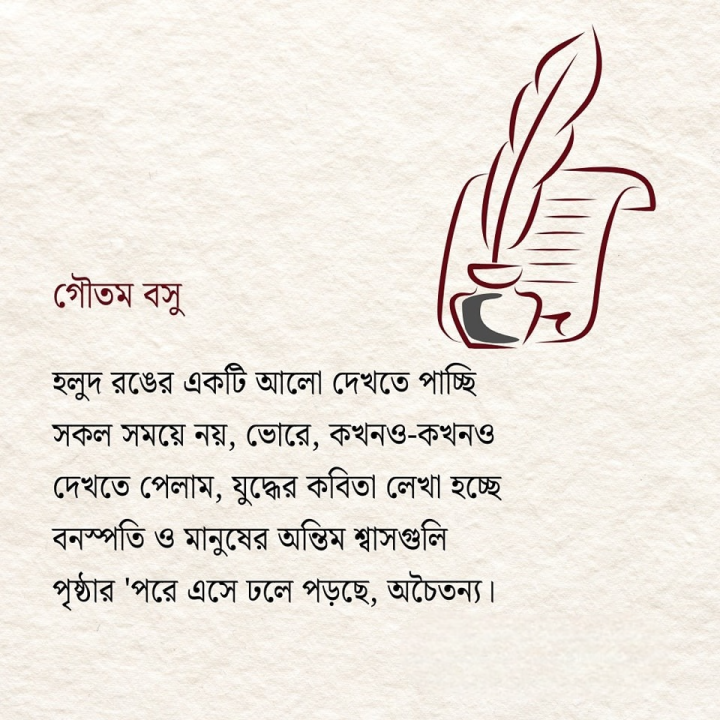 গৌতম বসু
হলুদ রঙের একটি আলো দেখতে পাচ্ছি
সকল সময়ে নয়, ভোরে, কখনও-কখনও
দেখতে পেলাম, যুদ্ধের কবিতা লেখা হচ্ছে
বনস্পতি ও মানুষের অন্তিম শ্বাসগুলি
পৃষ্ঠার 'পরে এসে ঢলে পড়ছে, অচৈতন্য।